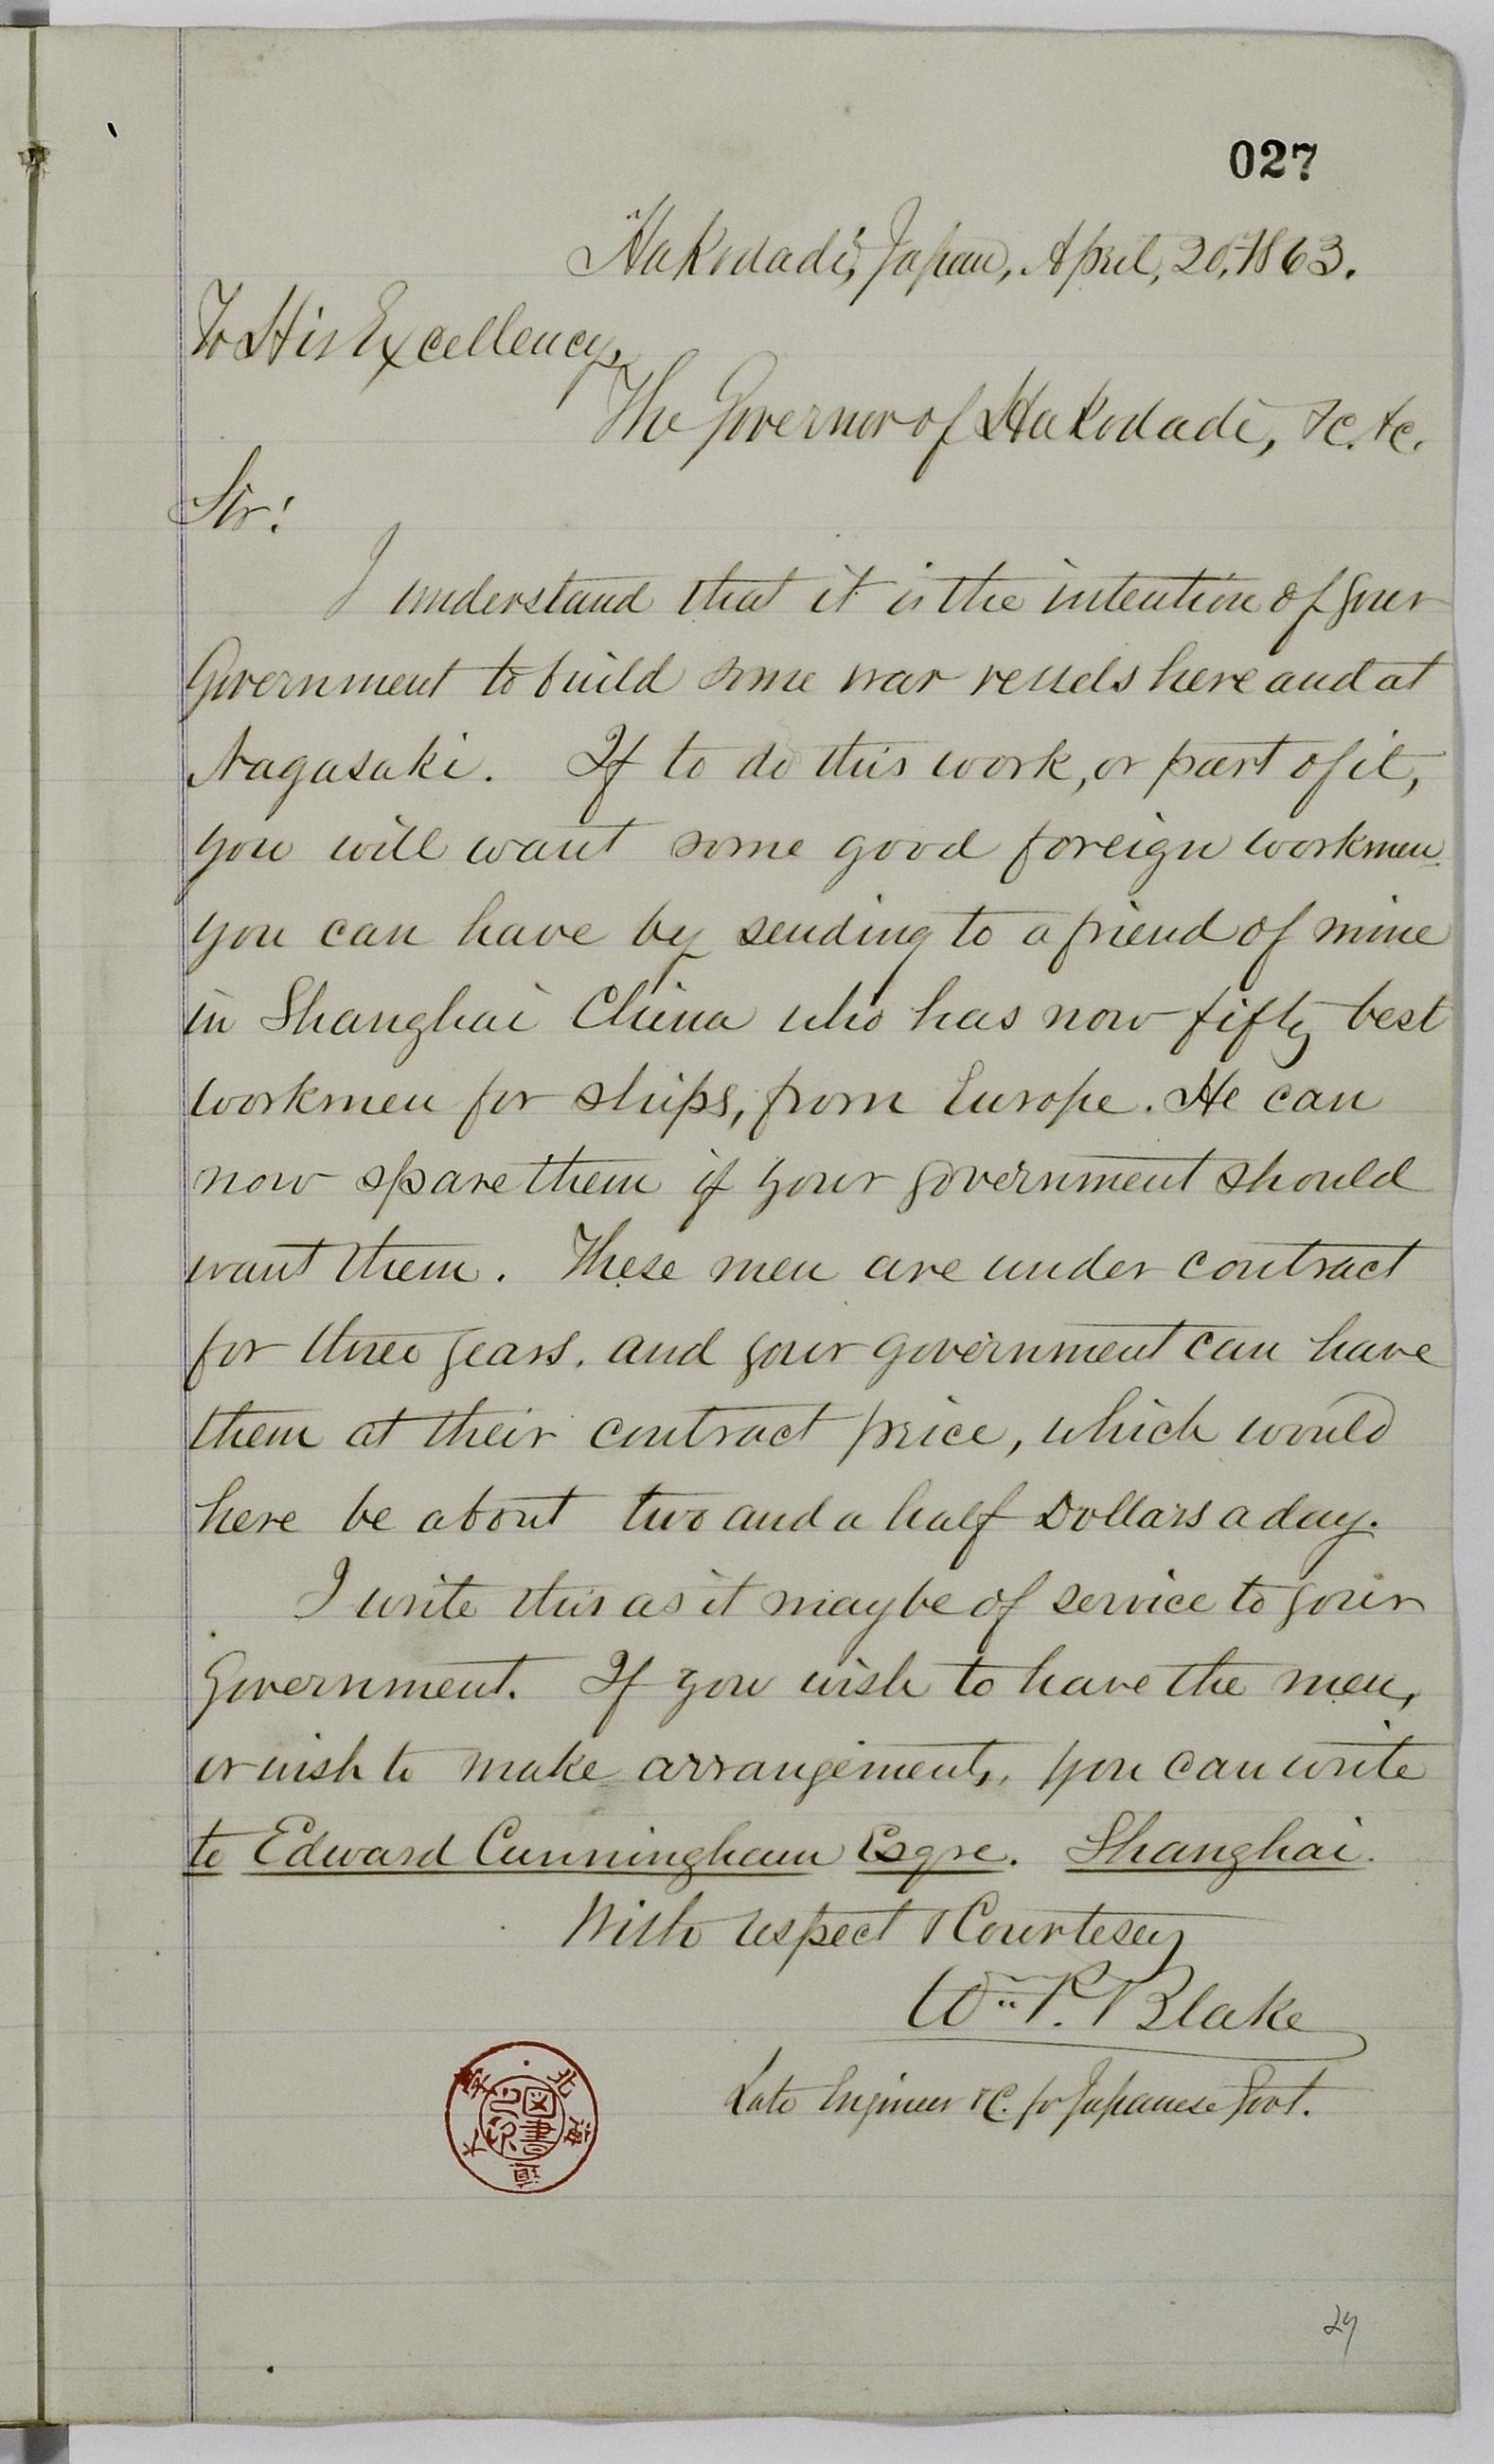 027
Hakodadi, Japan, April, 20, 1863.
To His Excellency,
The Governor of Hakodadi, &c. &c.
Sir!
I understand that it is the intention of your
Government to build some war vessels here and at
Nagasaki. If to do this work, or part of it,
you will want some good foreign workmen
you can have by sending to a friend of mine
in Shanghai China who has now fifty best
workmen for ships, from Europe. He can
now spare them if your government should
want them. These men are under contract
for three years, and your government can have
them at their contract price, which would
here be about two and a half Dollars a day.
I write this as it may be of service to your
Government. If you wish to have the men,
or wish to make arrangements, you can write
to Edward Cunningham Esqre. Shanghai.
With respect & Courtesey
Wm. P. Blake
Late Engineer &C. for Japanese Govt.
北海道帝國大學
圖書
29